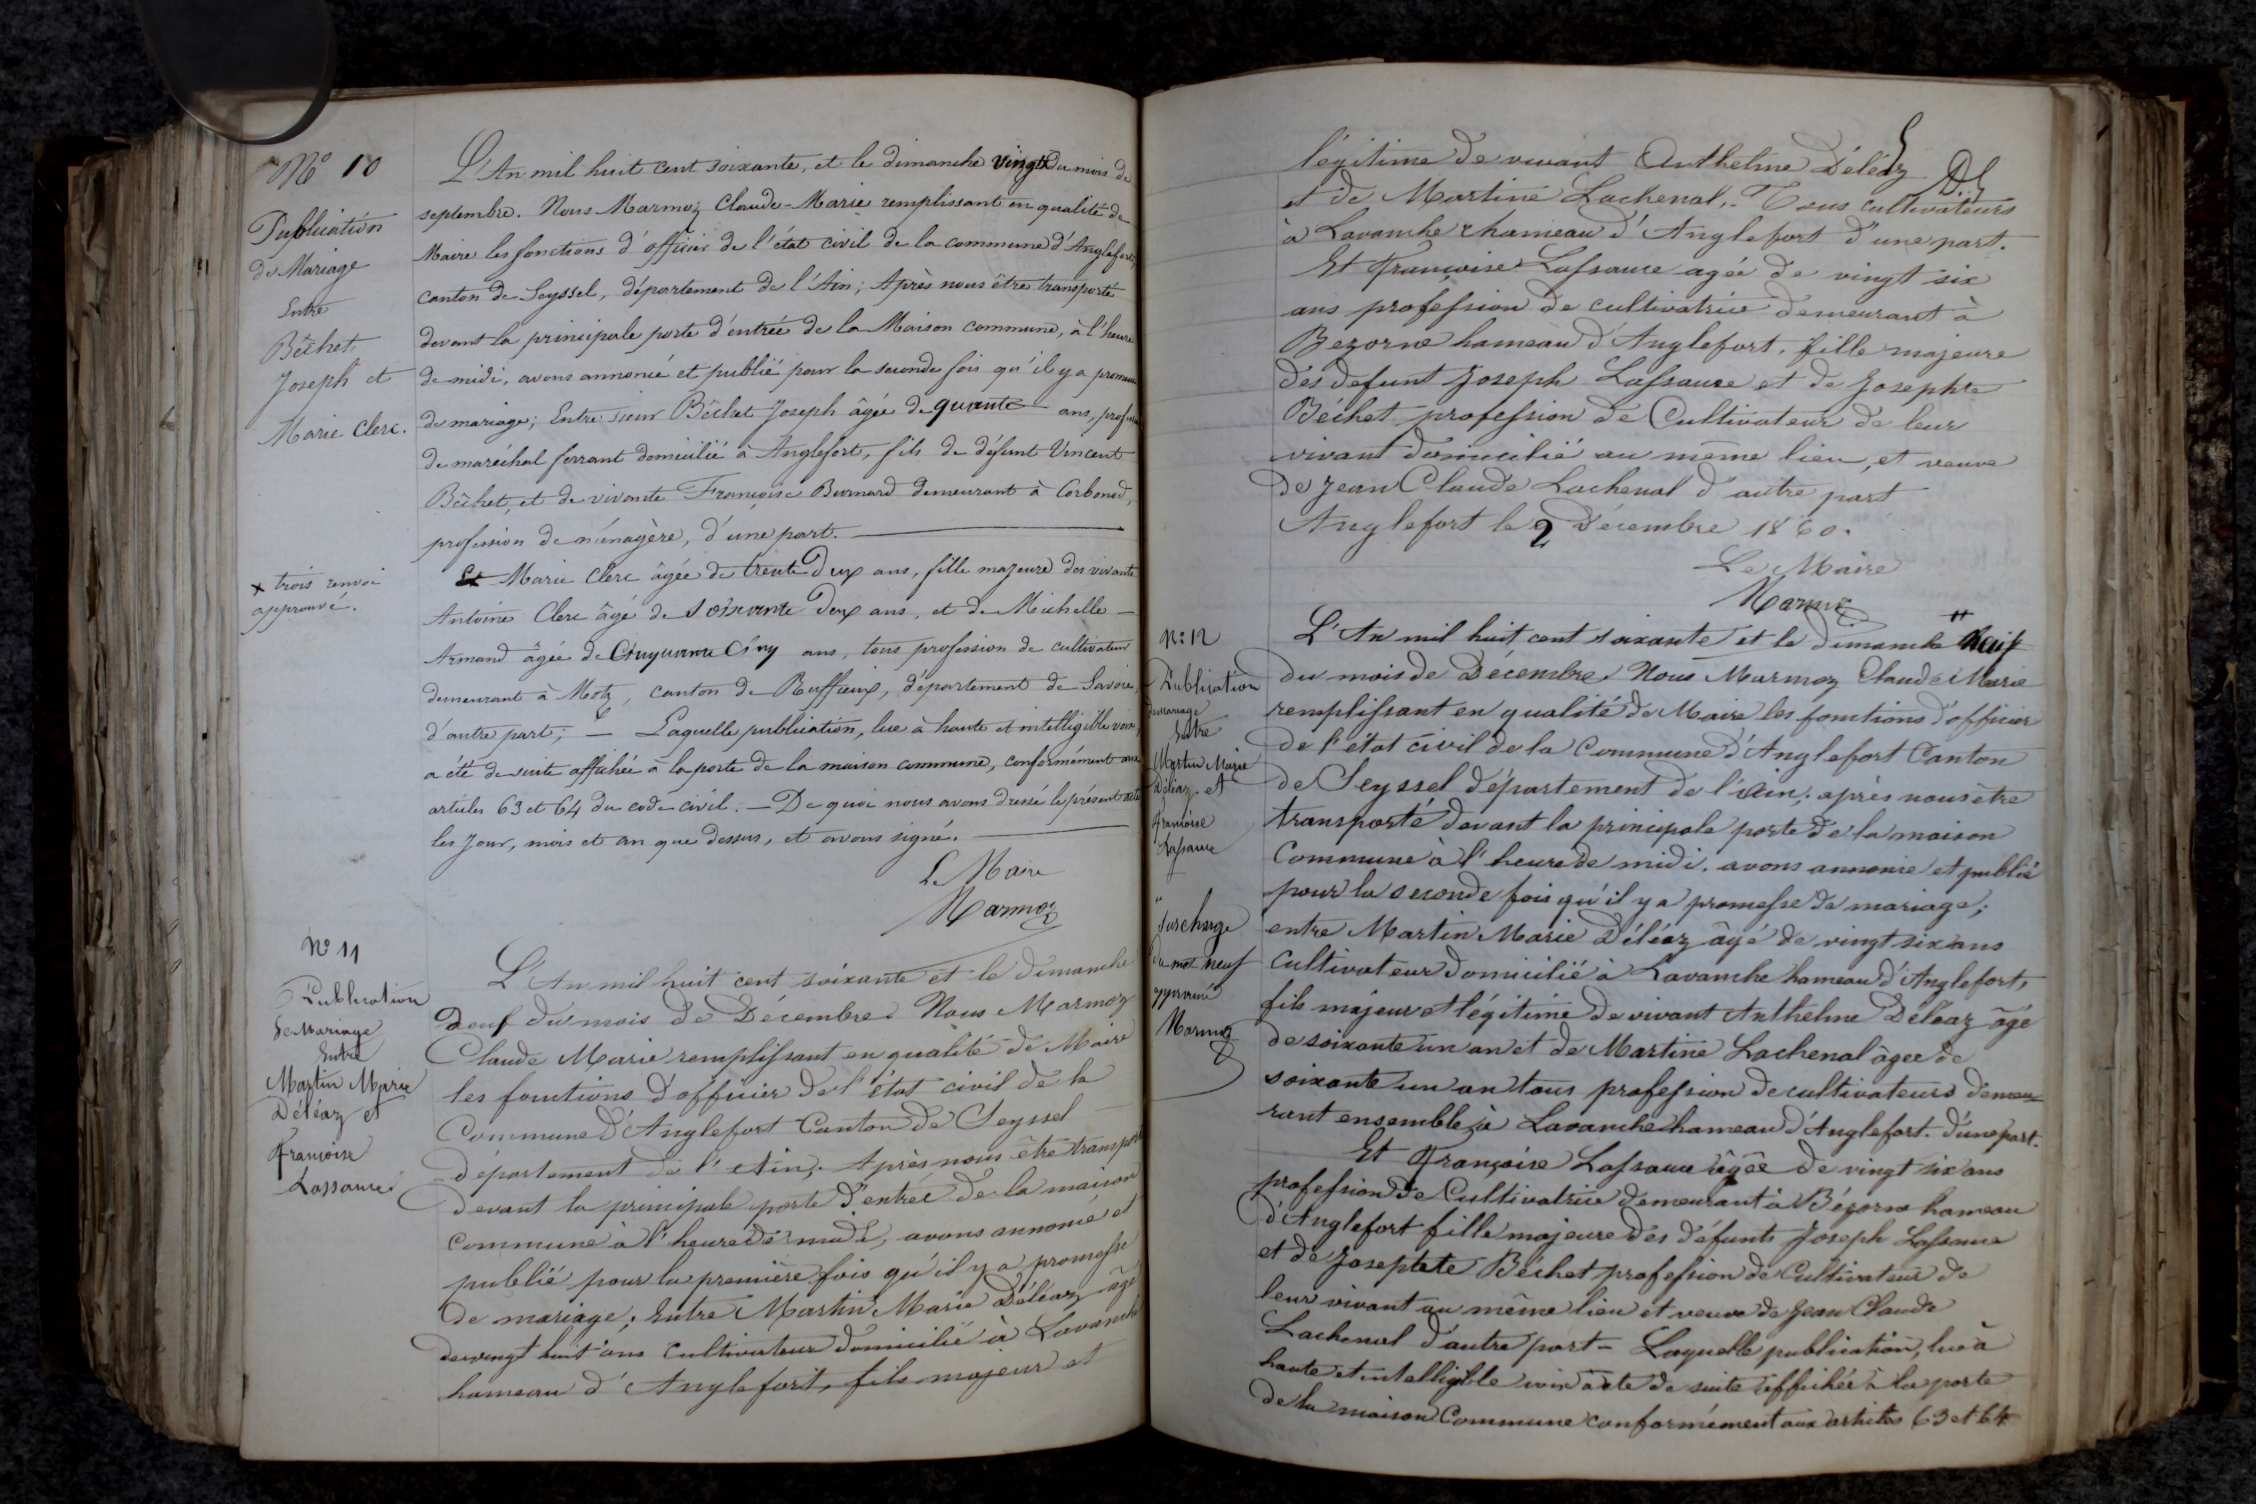 N° 10
Publication
de Mariage
Entre
Béchet
Joseph et
Marie Clerc.
x trois renvoi
approuvé.
L'An mil huit cent soixante, et le dimanche vingt du mois de
septembre. Nous Marmoz Claude-Marie remplissant en qualité de
Maire les fonctions d'officier de l'état civil de la commune d'Anglefort,
canton de Seyssel, département de l'Ain; Après nous être transporté
devant la principale porte d'entrée de la Maison commune, à l'heure
de midi, avons annoncé et publié pour la seconde fois qu'il y a promesse
de mariage; Entre sieur Béchet Joseph âgée de quarante ans, profession
de maréchal ferrant domicilié à Anglefort, fils de défunt Vincent
Béchet, et de vivante Françoise Burnard demeurant à Corbonod,
profession de ménagère, d'une part.
Et Marie Clerc âgée de trente Deux ans, fille majeure des vivants
Antoine Clerc âgé de soixante Deux ans, et de Michelle
Armand âgée de Cinquante Cinq ans, tous profession de cultivateur
demeurant à Motz, canton de Ruffieux, département de Savoie,
d'autre part; — Laquelle publication, lue à haute et intelligible voix,
a été de suite affichée à la porte de la maison commune, conformément aux
articles 63 et 64 du code civil. — De quoi nous avons dressé le présent acte
les Jour, mois et an que dessus, et avons signé.
Le Maire
Marmoz
N° 11
Publication
de Mariage
Entre
Martin Marie
Déléaz et
Françoise
Lassauce
L'An mil huit cent soixante et le dimanche
deux du mois de Décembre Nous Marmoz
Claude Marie remplissant en qualité de Maire
les fonctions d'officier de l'état civil de la
Commune d'Anglefort Canton de Seyssel
département de l'Ain; Après nous être transporté
devant la principale porte d'entrée de la maison
commune à l'heure de midi, avons annoncé et
publié pour la première fois qu'il y a promesse
de mariage; Entre Martin Marie Déléaz âgé
de vingt huit ans Cultivateur domicilié à Lavanche
hameau d'Anglefort, fils majeur et
légitime de vivant Anthelme Déléaz
et de Martine Lachenal, Tous cultivateurs
à Lavanche hameau d'Anglefort d'une part.
Et Françoise Lassauce agée de vingt six
ans profession de cultivatrice demeurant à
Bezorne hameau d'Anglefort, fille majeure
des defunt Joseph Lassauce et de Josephte
Béchet profession de Cultivateur de leur
vivant domicilié au même lieu, et veuve
de Jean Claude Lachenal d'autre part
Anglefort le 2 Décembre 1860.
Le Maire
Marmoz
N° 12
Publication
de mariage
Entre
Martin Marie
Déléaz et
Françoise
Lassauce
"
surcharge
du mot neuf
approuvé
Marmoz
L'An mil huit cent soixante et le dimanche " Neuf
du mois de Décembre Nous Marmoz Claude Marie
remplissant en qualité de Maire les fonctions d'officier
de l'état civil de la Commune d'Anglefort Canton
de Seyssel département de l'Ain; après nous être
transporté devant la principale porte de la maison
Commune à l'heure de midi. avons annoncé et publié
pour la seconde fois qu'il y a promesse de mariage;
entre Martin Marie Déléaz âgé de vingt six ans
Cultivateur domicilié à Lavanche hameau d'Anglefort,
fils majeur et légitime de vivant Anthelme Déléaz âgé
de soixante un an et de Martine Lachenal âgee de
soixante un an tous profession de cultivateurs demeu-
rant ensemble à Lavanche hameau d'Anglefort. d'une part.
Et Françoise Lassauce âgée de vingt six ans
profession de Cultivatrice demeurant à Bézorne hameau
d'Anglefort fille majeure des défunts Joseph Lassauce
et de Josephte Béchet profession de Cultivateur de
leur vivant au même lieu et veuve de Jean Claude
Lachenal d'autre part – Laquelle publication, lue à
haute et intelligible voix a été de suite affichée à la porte
de la maison Commune conformément aux articles 63 et 64